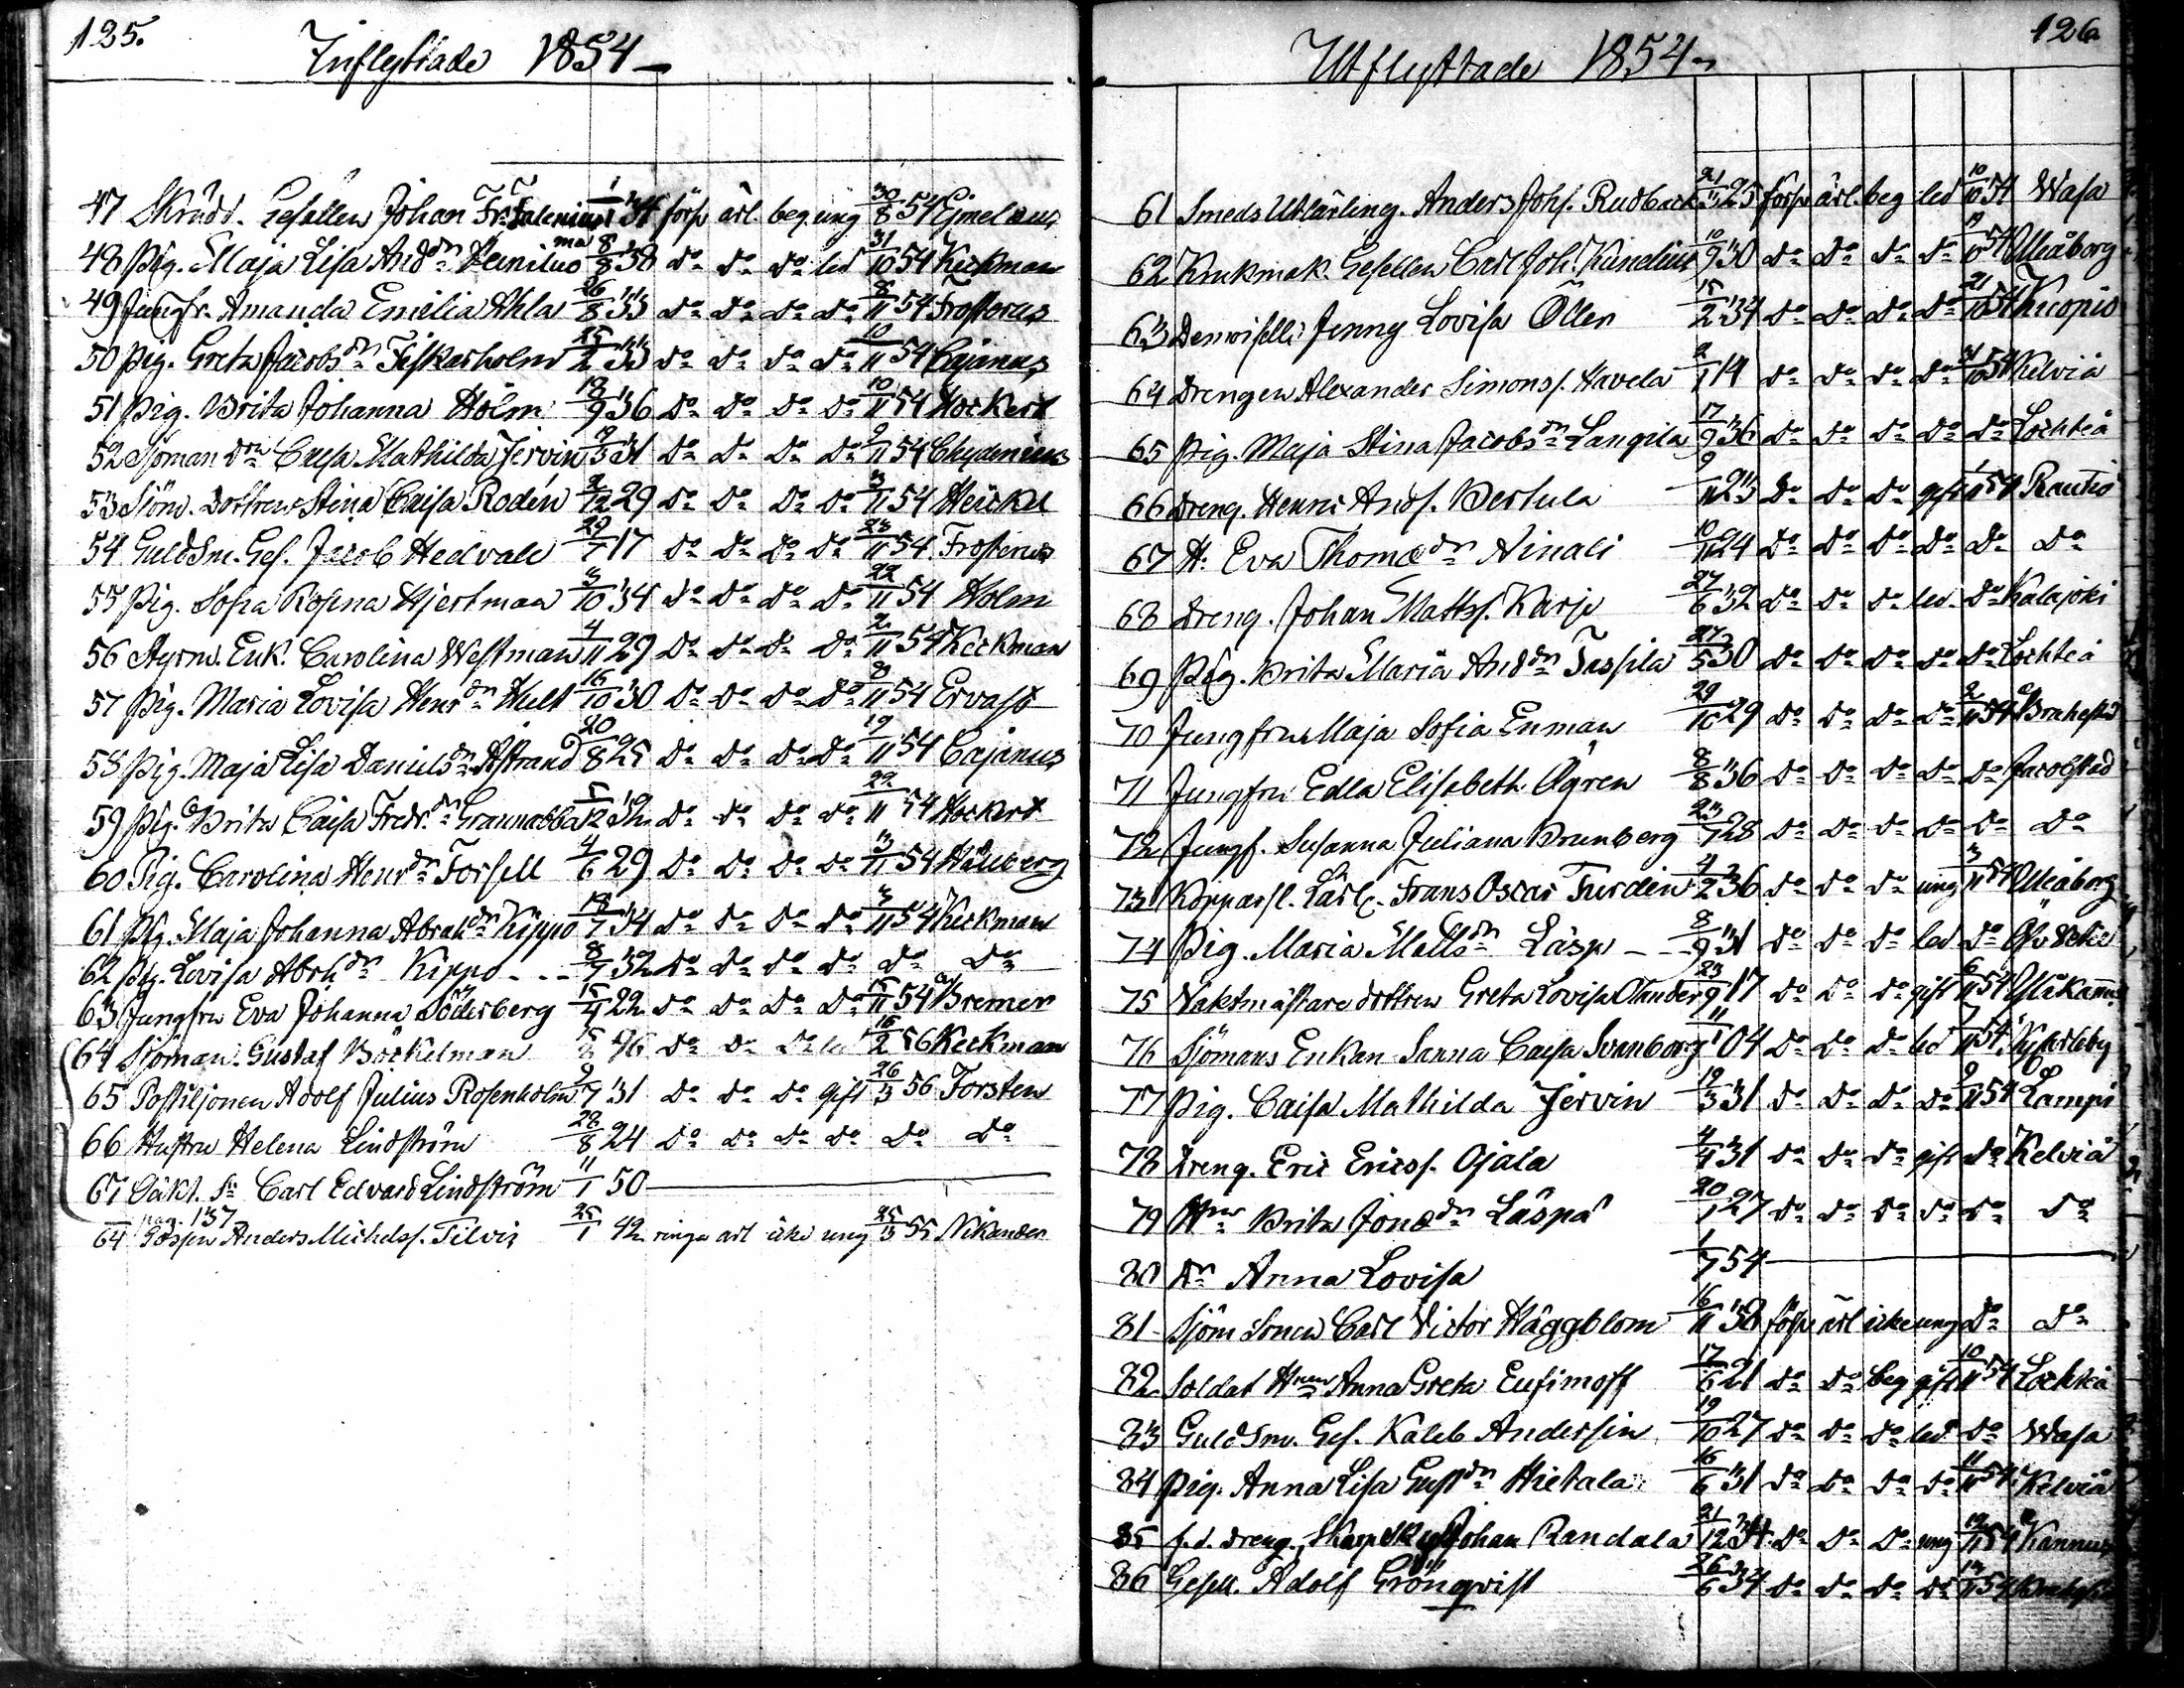 125.
Inflyttade 1854
47 Skrädd. Gesällen Johan Fr. Falenius 1/1 34 försv ärl. beg. ung 30/8 54 Gmelaus
48 Pig. Maja Lisa And.dn 8/8 38 do do do led 31/10 54 Keckman
49 Jungfr. Amanda Emilia Ahla 26/8 33 do do do do 8/11 54 Frosterus
50 Pig. Greta Jacobsdn Fiskarholm 25/2 33 do do do do 10/11 54 Cajanus
51 Pig. Brita Johanna Holm 18/9 36 do do do do 10/11 54 Hockert
52 Sjöman dn Caisa Mathilda Jervin 19/3 31 do do do do 9/11 54 Chydenius
53 Sjöm. dottren Stina Caisa Rodén 2/12 29 do do do do 3/11 54 Heickel
54 Guldsm. Ges. Jacob Hedvall 29/7 17 do do do do 23/11 54 Frosterus
55 Pig. Sofia Rosina Hjertman 3/10 34 do do do do 22/11 54 Holm
56 Enk. Carolina Westman 4/11 29 do do do do 2/11 54 Keckman
57 Pig. Maria Lovisa Henrdn Hult 16/10 30 do do do do 8/11 54 Ervast
58 Pig. Maja Lisa Danielsdn Åstrand 20/8 25 do do do do 19/11 54 Cajanus
59 Pig. Brita Caisa Fredr.dn Grannabba 5/12 32 do do do do 22/11 54 Hockert
60 Pig. Carolina Henrdn Forsell 4/6 29 do do do do 3/11 54 Hällberg
61 Pig. Maja Johanna Abrahdn Kippo 18/7 34 do do do do 3/11 54 Keckman
62 Pig. Lovisa Abrhdn Kippo - - 8/7 32 do do do do do do
63 Jungfru Eva Johanna Söderberg 15/4 22 do do do do 15/11 54 Bremer
64 Sjöman Gustaf Böckelman 5/8 96 do do do led 16/2 56 Keckman
65 Postiljonen Adolf Julius Rosenholm 9/7 31 do do do gift 26/3 56 Forsten
66 Hustru Helena Lindström 28/8 24 do do do do do do
67 Oäkt. Sn Carl Edvard Lindström 11/1 50
pag. 137
64 Gossen Anders Michelss. Tilvis 25/1 42 ringa ärl icke ung 25/3 55 Nikander
126
Utflyttade 1854
61 Smeds Utlärling. Anders Johs. Rudback 21/11 25 försv ärl. beg led 10/10 54 Wasa
62 Krukmak. Gesellen Carl Joh. Kundelius 10/9 30 do do do do 19/10 54 Uleåborg
63 Demoiselle Jenny Lovisa Öller 15/2 34 do do do do 21/10 54 Kuopio
64 Drengen Alexander Simonss. Havela 2/1 14 do do do do 31/10 54 Kelviå
65 Pig. Maja Stina Jacobsdn Langila 17/9 36 do do do do do Lochteå
66 Dreng. Henric Ands. Bertula 9/11 23 do do do gift 1/11 54 Rautio
67 H: Eva Thomædn Ninali 10/11 24 do do do do do do
68 Dreng. Johan Matts. Karje 27/6 32 do do do led. do Kalajoki
69 Pig. Brita Maria Anddn Jaspila 27/5 30 do do do do do Lochteå
70 Jungfru Maja Sofia Enman 29/10 29 do do do do 2/11 54 Brahestd
71 Jungfru Edla Elisabeth Ögren 8/8 36 do do do do do Jacobstad
72 Jungf. Susanna Juliana Brunberg 23/7 28 do do do do do do
73 Kopparsl. Lärl. Frans Oscar Furdén 4/2 36 do do do ung 3/11 54 Uleåborg
74 Pig. Maria Mattsdn Läsp - - 8/9 31 do do do led do
75 Vaktmästare dottren Greta Lovisa Olander 23/9 17 do do do gift 6/11 54
76 Sjömans Enkan Sanna Caisa Svanborg 11/1 04 do do do led 7/11 54
77 Pig. Caisa Mathilda Jervin 19/3 31 do do do do 9/11 54 Lampi
78 Dreng. Eric Ericss. Ojala 4/4 31 do do do gift do Kelviå
79 Hu Brita Jonædn Läspä 20/1 27 do do do do do do
80 Dn Anna Lovisa 1/7 54
81 Sjöm Sonen Carl Victor Häggblom 16/11 38 försv ärl icke ung do do
82 Soldat Hun Anna Greta Eufimoff 17/6 21 do do beg gift 10/11 54 Lochteå
83 Guldsm. Ges. Kaleb Andersin 19/10 27 do do do led do Wasa
84 Pig. Anna Lisa Gustdn Hietala 16/6 31 do do do do 11/11 54 Kelviå
85 f.d. dreng. Johan Randala 21/12 34 do do do ung 12/11 54 Kannus
86 Gesell. Adolf Grönqvist 26/6 34 do do do do 13/11 54